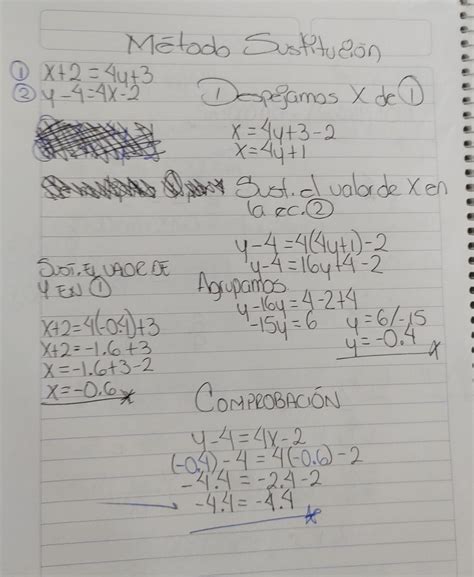 Método Sustitución
① x+2=4y+3
② y-4=4x-2
① Despejamos X de ①
x=4y+3-2
x=4y+1
Sust. el valor de x en
la ec. ②
y-4=4(4y+1)-2
y-4=16y+4-2
Agrupamos
y-16y=4-2+4
-15y=6
y=6/-15
y=-0.4
SUST. EL VALOR DE
Y EN ①
x+2=4(-0.4)+3
x+2=-1.6+3
x=-1.6+3-2
x=-0.6
COMPROBACIÓN
y-4=4x-2
(-0.4)-4=4(-0.6)-2
-4.4=-2.4-2
-4.4=-4.4